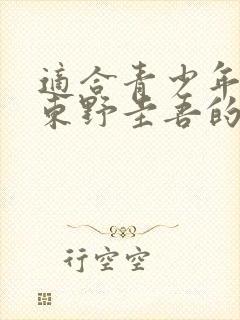 適合青少年
東野圭吾的
行空空